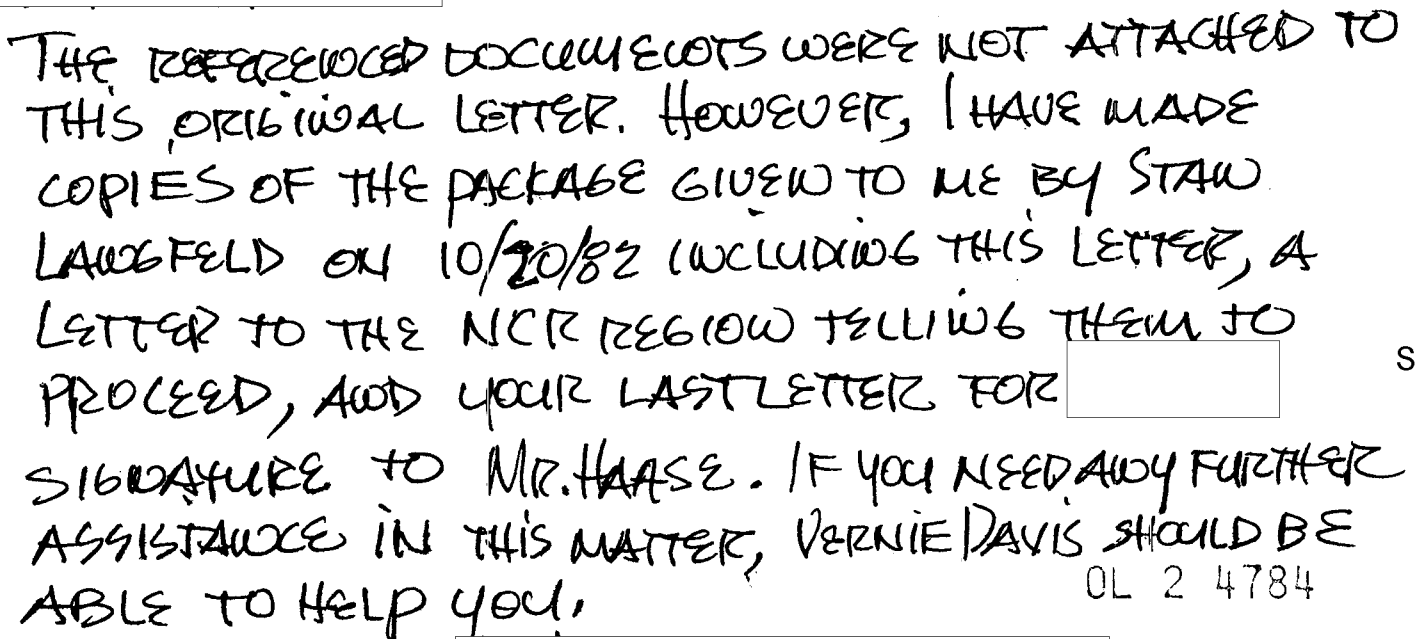 THE REFERENCED DOCUMENTS WERE NOT ATTACHED TO
THIS ORIGINAL LETTER. HOWEVER, I HAVE MADE
COPIES OF THE PACKAGE GIVEN TO ME BY STAN
LANGFELD ON 10/20/82 INCLUDING THIS LETTER, A
LETTER TO THE NCR REGION TELLING THEM TO
PROCEED, AND YOUR LAST LETTER FOR
S
SIGNATURE TO MR. HAASE. IF YOU NEED ANY FURTHER
ASSISTANCE IN THIS MATTER, VERNIE DAVIS SHOULD BE
ABLE TO HELP YOU.
OL 2 4784